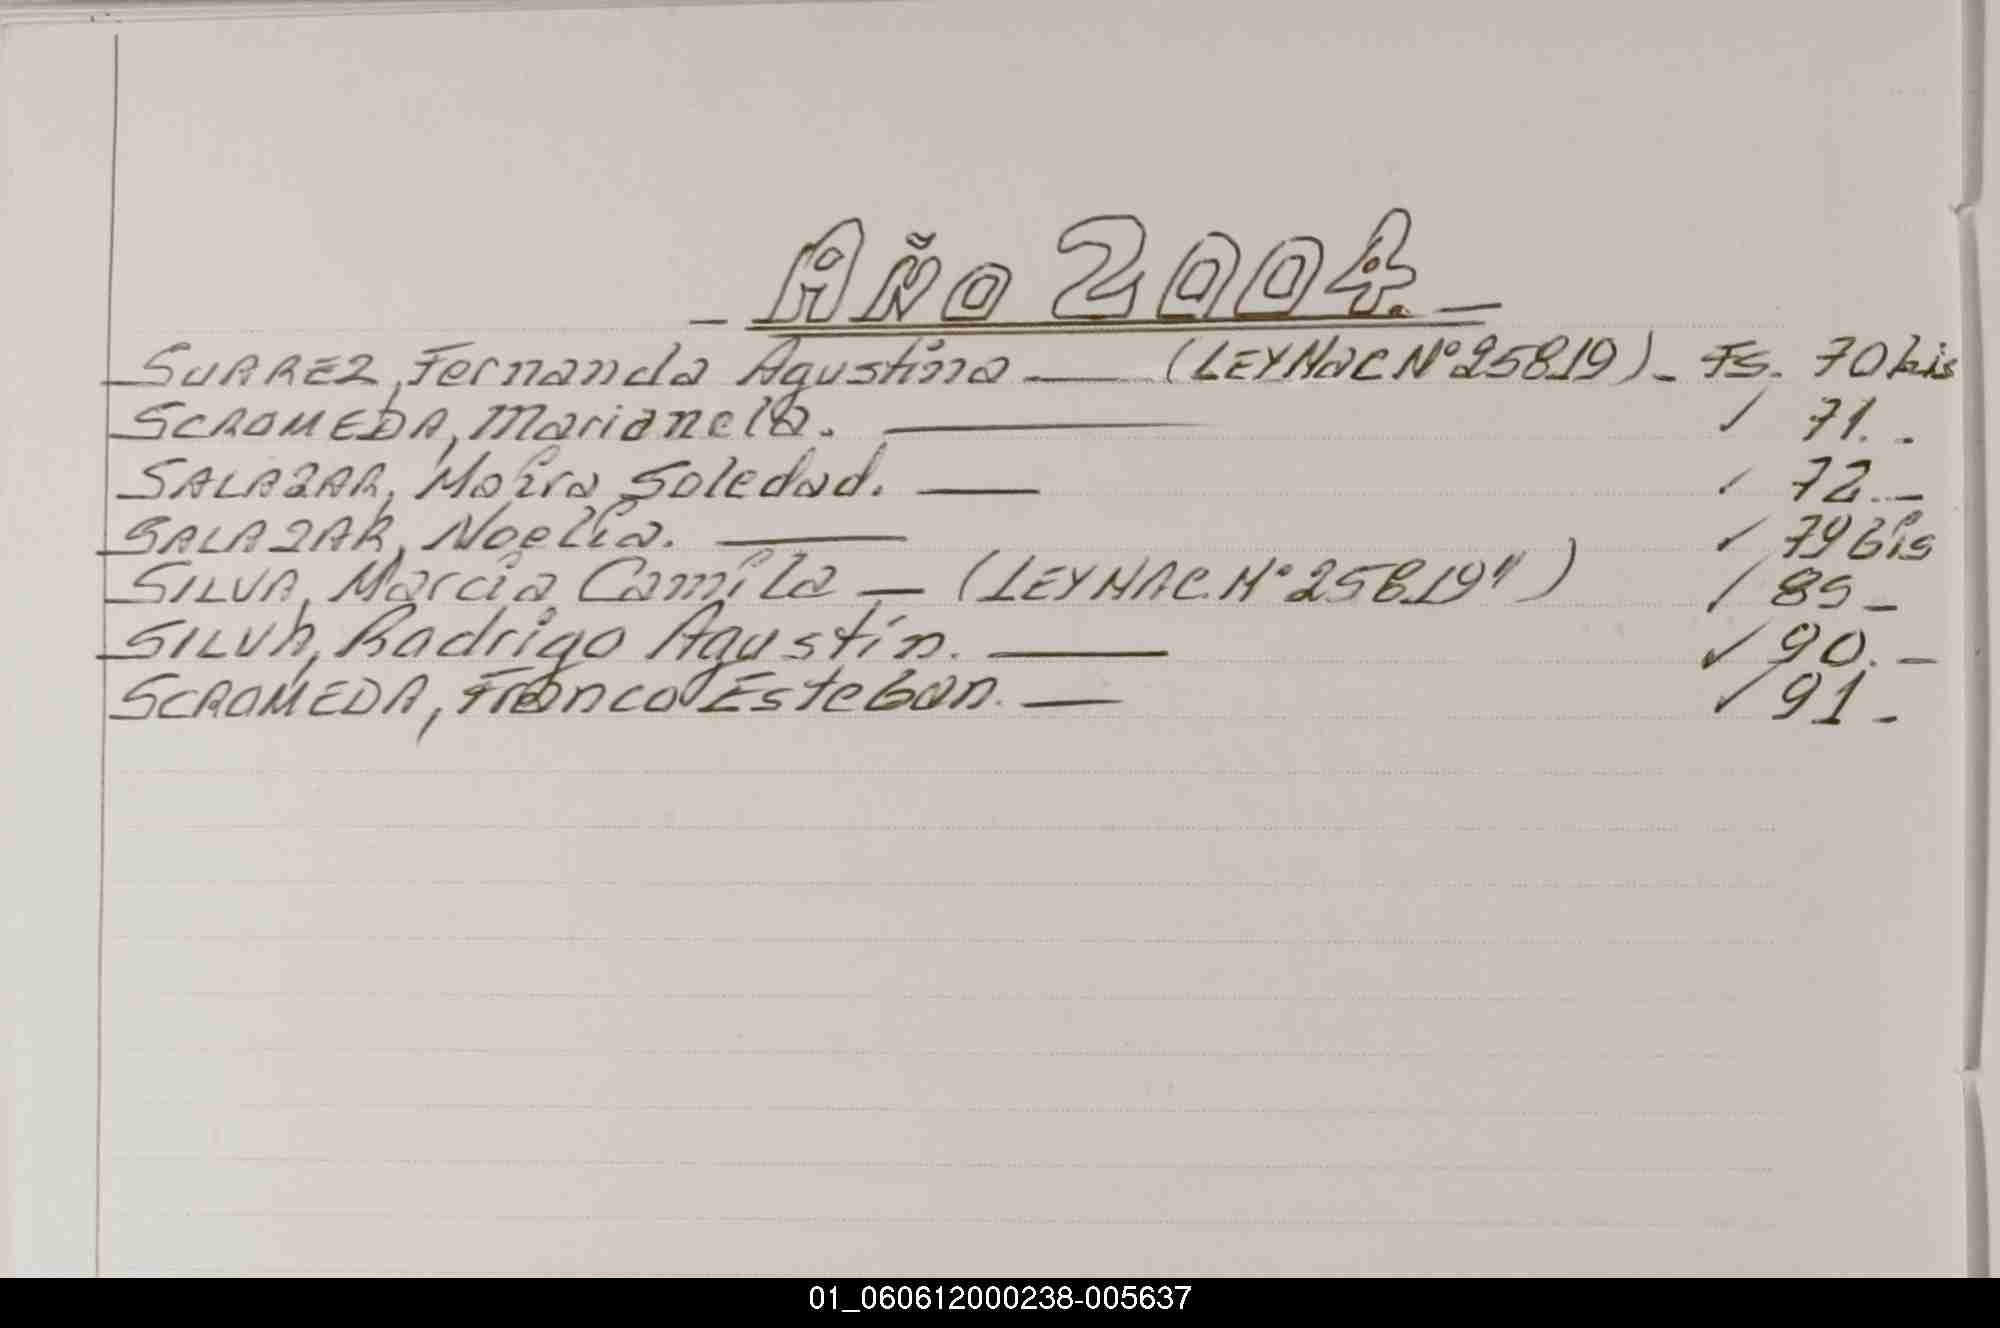 _ Año 2004. _
SUAREZ, Fernanda Agustina — (LEY NAC Nº 25819) _ Fs. 70 bis
SCROMEDA, Marianela. — ✓ 71. -
SALAZAR, Moira Soledad. — ✓ 72. -
SALAZAR, Noelia. — ✓ 79 bis
SILVA, Marcia Camila — (LEY NAC. Nº 25819") / 85 -
SILVA, Rodrigo Agustín. — ✓ 90. -
SCROMEDA, Franco Esteban. — ✓ 91 -
01_060612000238-005637